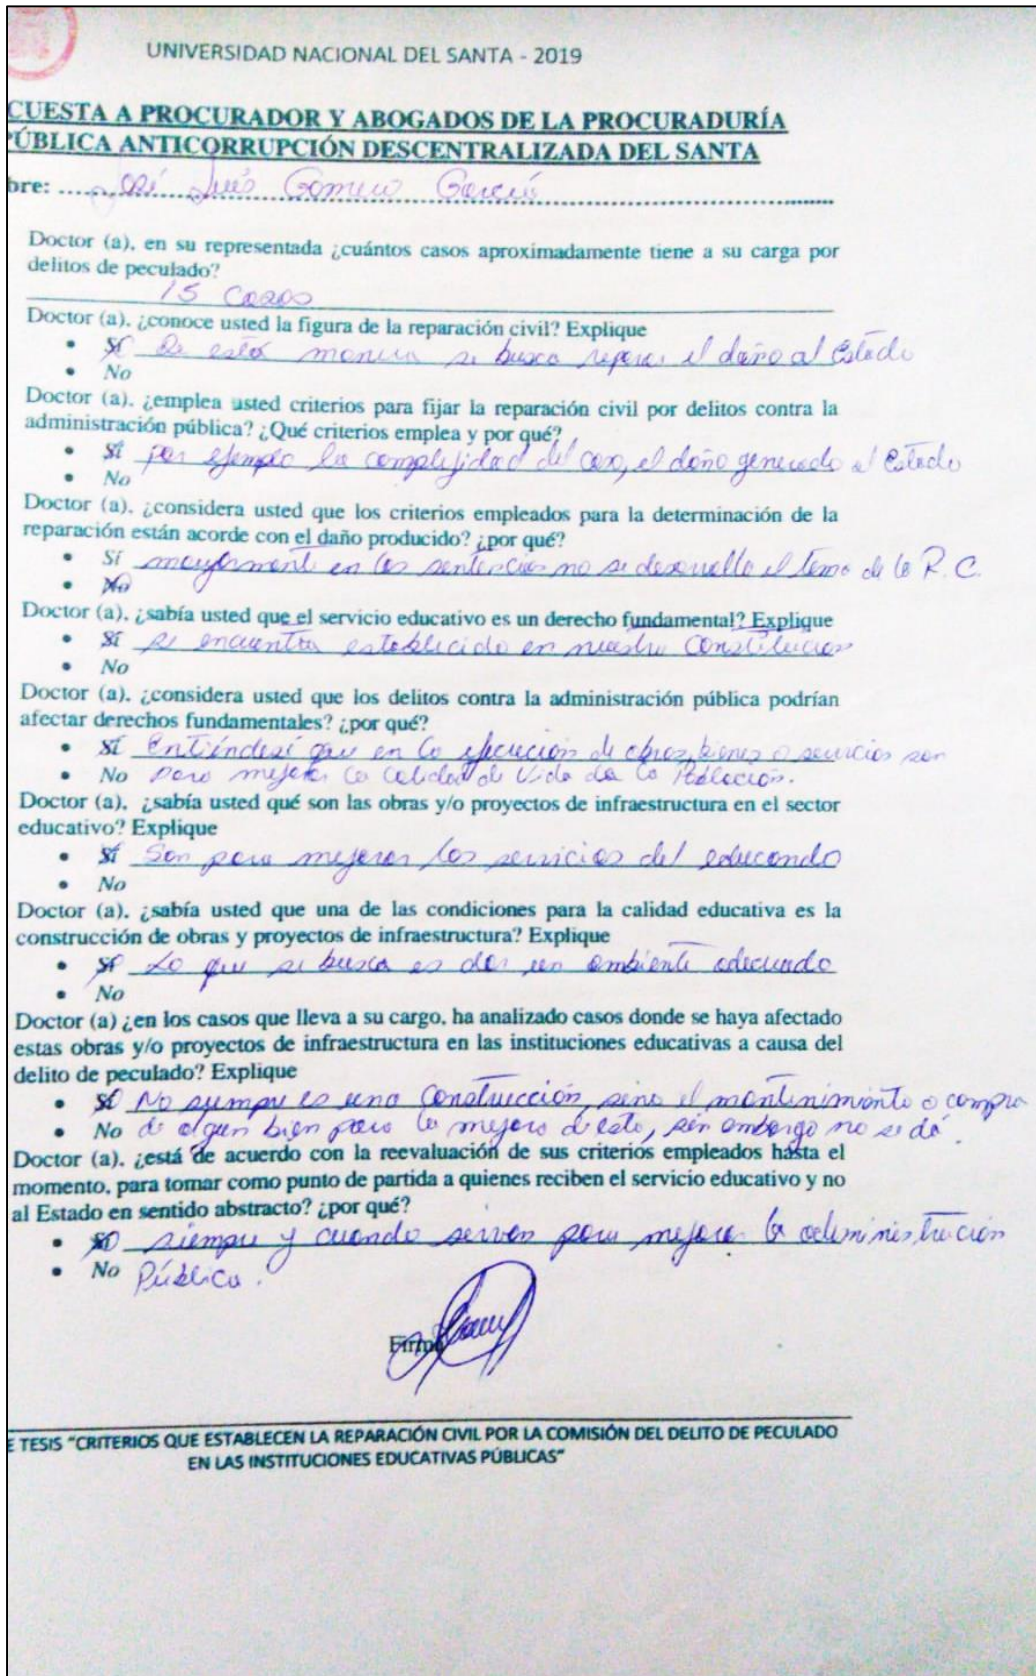 UNIVERSIDAD NACIONAL DEL SANTA - 2019
CUESTA A PROCURADOR Y ABOGADOS DE LA PROCURADURÍA
PÚBLICA ANTICORRUPCIÓN DESCENTRALIZADA DEL SANTA
bre: José Luis Gomero García
Doctor (a), en su representada ¿cuántos casos aproximadamente tiene a su carga por
delitos de peculado?
15 Casos
Doctor (a). ¿conoce usted la figura de la reparación civil? Explique
• Sí De esta manera se busca reparar el daño al Estado
• No
Doctor (a). ¿emplea usted criterios para fijar la reparación civil por delitos contra la
administración pública? ¿Qué criterios emplea y por qué?
• Sí por ejemplo la complejidad del caso, el daño generado al Estado
• No
Doctor (a). ¿considera usted que los criterios empleados para la determinación de la
reparación están acorde con el daño producido? ¿por qué?
• Sí mayormente en las sentencias no se desarrolla el tema de la R.C.
• No
Doctor (a). ¿sabía usted que el servicio educativo es un derecho fundamental? Explique
• Sí se encuentra establecido en nuestra Constitucion
• No
Doctor (a). ¿considera usted que los delitos contra la administración pública podrían
afectar derechos fundamentales? ¿por qué?
• Sí Entiéndese que en la ejecución de obras, bienes o servicios son
• No para mejorar la calidad de vida de la Población.
Doctor (a). ¿sabía usted qué son las obras y/o proyectos de infraestructura en el sector
educativo? Explique
• Sí Son para mejorar los servicios del educando
• No
Doctor (a). ¿sabía usted que una de las condiciones para la calidad educativa es la
construcción de obras y proyectos de infraestructura? Explique
• Sí Lo que se busca es dar un ambiente adecuado
• No
Doctor (a) ¿en los casos que lleva a su cargo, ha analizado casos donde se haya afectado
estas obras y/o proyectos de infraestructura en las instituciones educativas a causa del
delito de peculado? Explique
• Sí No siempre es una Construcción, sino el mantenimiento o compra
• No de algun bien para la mejora de esto, sin embargo no se dá.
Doctor (a). ¿está de acuerdo con la reevaluación de sus criterios empleados hasta el
momento, para tomar como punto de partida a quienes reciben el servicio educativo y no
al Estado en sentido abstracto? ¿por qué?
• Sí siempre y cuando servan para mejorar la administración
• No Pública.
Firma
E TESIS "CRITERIOS QUE ESTABLECEN LA REPARACIÓN CIVIL POR LA COMISIÓN DEL DELITO DE PECULADO
EN LAS INSTITUCIONES EDUCATIVAS PÚBLICAS"